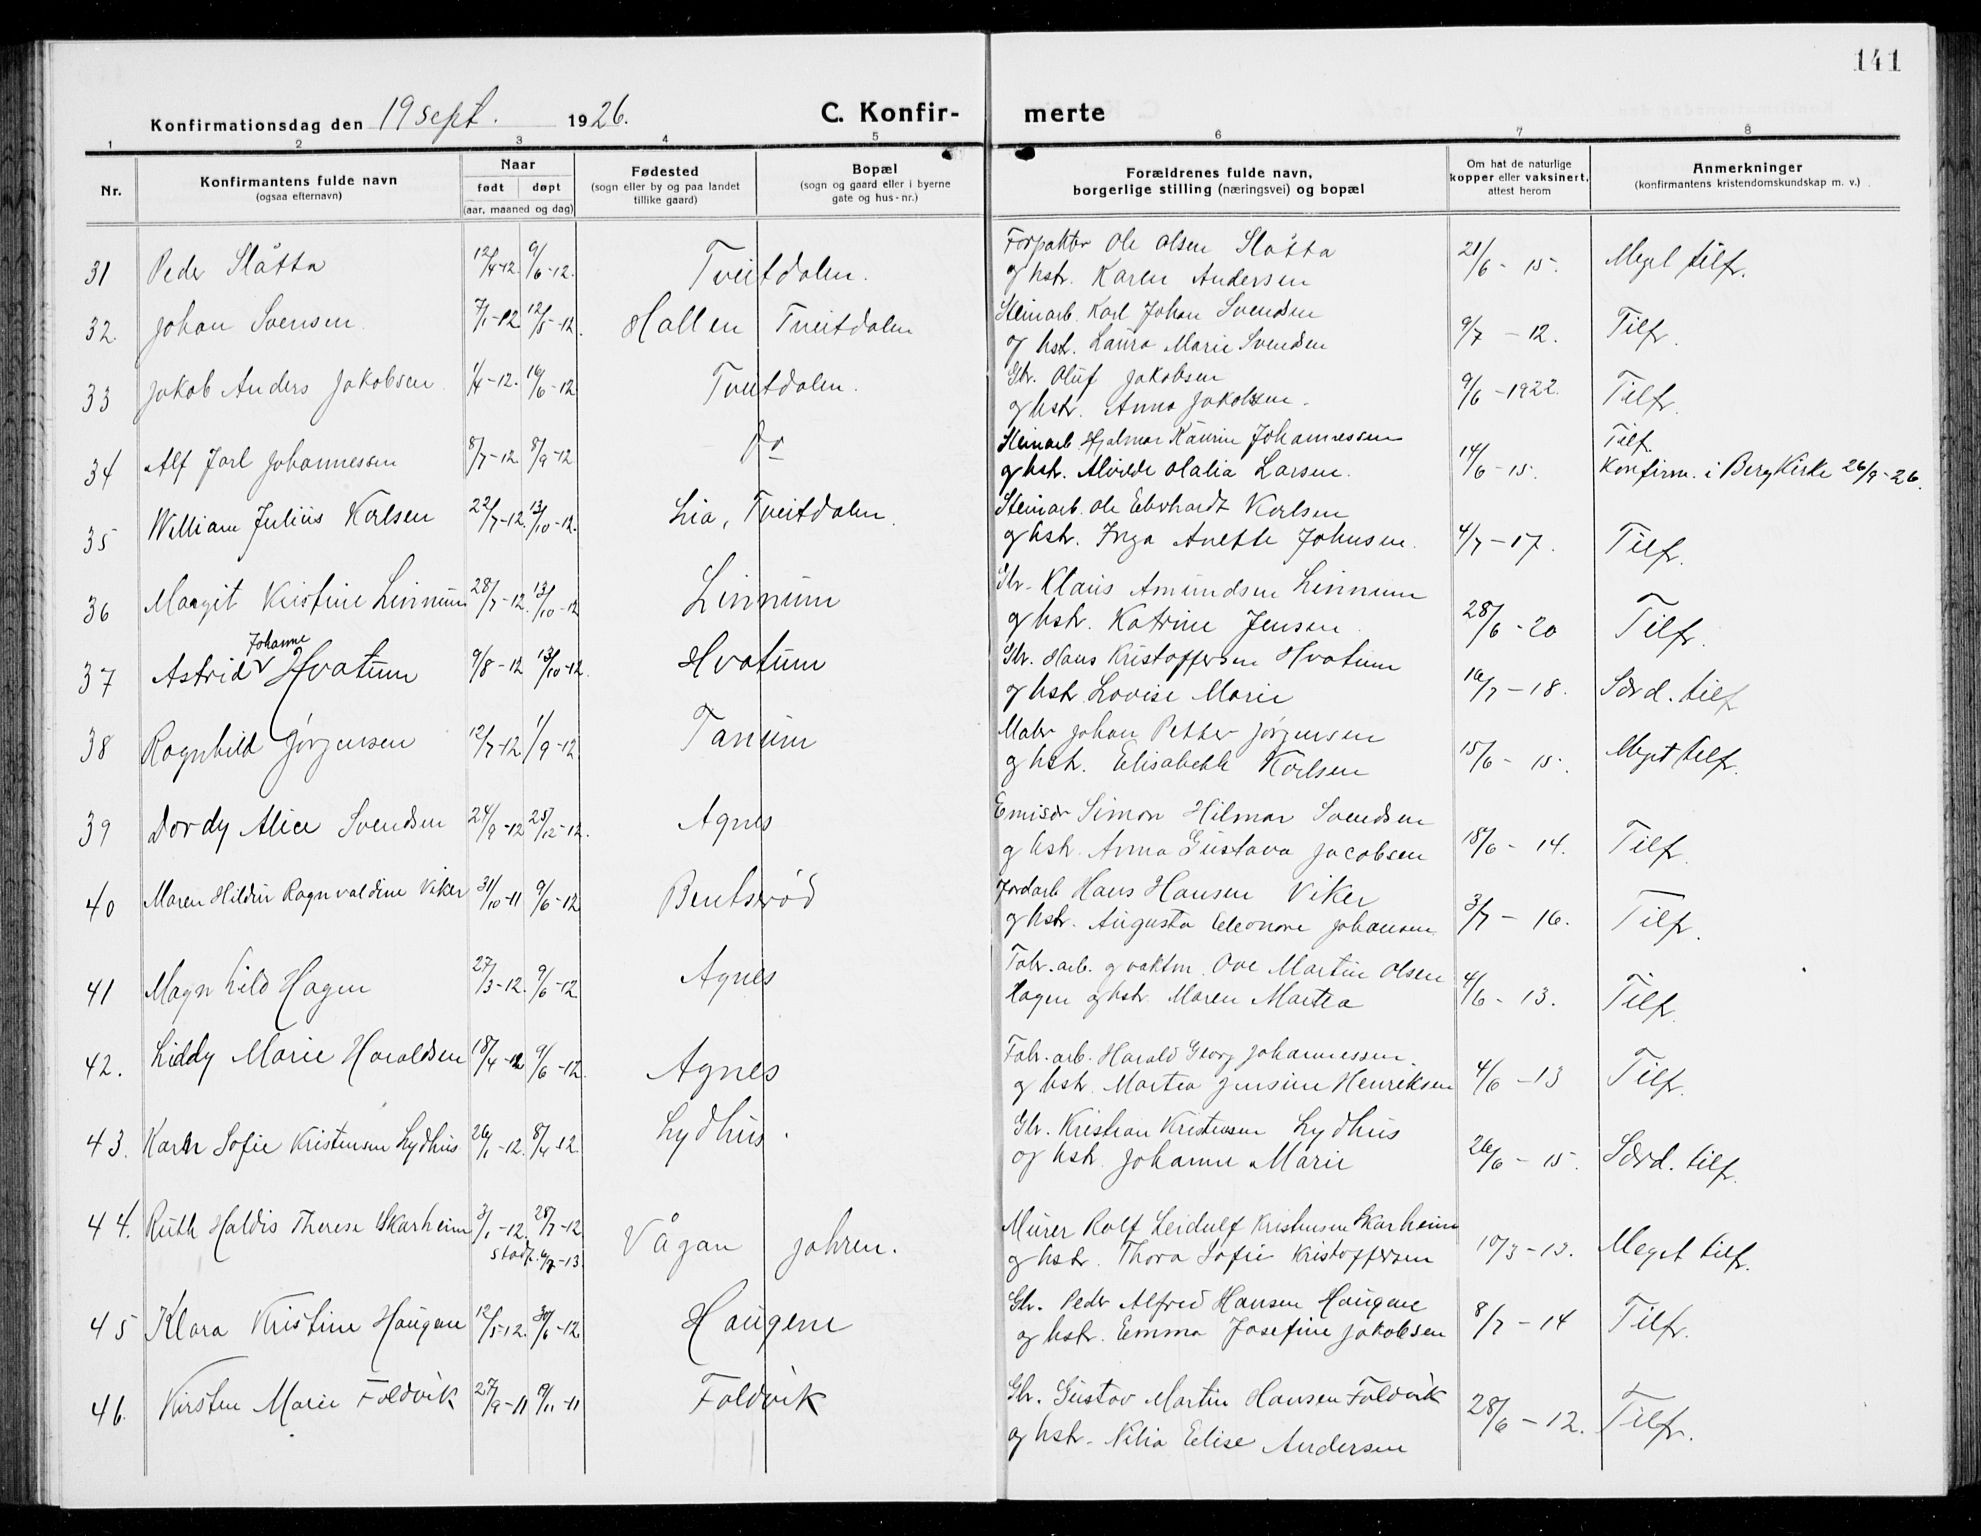 141
Konfirmationsdag den 19 sept. 1926.
C. Konfir- merte
1 2 3 4 5 6 7 8
Nr.
Konfirmantens fulde navn
(ogsaa efternavn)
Naar
født døpt
(aar, maaned og dag)
Fødested
(sogn eller by og paa landet
tillike gaard)
Bopæl
(sogn og gaard eller i byerne
gate og hus-nr.)
Forældrenes fulde navn,
borgerlige stilling (næringsvei) og bopæl
Om hat de naturlige
kopper eller vaksinert,
attest herom
Anmerkninger
(konfirmantens kristendomskundskap m. v.)
31 Peder Slåtta 12/4-12. 9/6-12. Tveitdalen. Forpakter Ole Olsen Slåtta 21/6-15. Meget tilfr.
og hstr. Karen Andersen
32. Johan Svensen 7/1-12 12/5-12. Hallen Tveitdalen Steinarb. Karl Johan Svendsen 9/7-12. Tilfr.
og hstr. Laura Marie Svendsen
33 Jakob Anders Jakobsen 1/4-12. 16/6-12 Tveitdalen. Gbr. Oluf Jakobsen 9/6-1922. Tilfr.
og hstr. Anna Jakobsen.
34 Alf Jarl Johannessen 8/7-12 8/9-12 Do Steinarb Hjalmar Kaurin Johannessen 14/6-15. Tilf.
og hstr. Alvilde Olalia Larsen. Konfirm. i Berg Kirke 26/9-26.
35 William Julius Karlsen 22/7-12. 13/10-12. Lia, Tveitdalen. Steinarb. Ole Eberhardt Karlsen
og hstr. Inga Anette Johnsen. 4/7-17. Tilfr.
36 Margit Kristine Linnum 28/7-12. 13/10-12 Linnum Gbr. Klaus Amundsen Linnum
og hstr. Katrine Jensen. 28/6-20 Tilfr.
37 Astrid Johanne Hvatum 9/8-12 13/10-12. Hvatum Gbr. Hans Kristoffersen Hvatum
og hstr. Lovise Marie 16/7-18. Særd. tilf
38 Ragnhild Jørgensen 12/7-12 1/9-12. Tanum Maler Johan Petter Jørgensen
og hstr. Elisabeth Karlsen 15/6-15. Meget tilfr.
39 Dordy Alice Svendsen 24/9-12 25/12-12. Agnes Emisær Simon Hilmar Svendsen
og hstr. Anna Gustava Jacobsen 18/6-14. Tilfr.
40 Maren Hildur Ragnvaldine Viker 31/10-11 9/6-12 Bentsrød Jordarb Hans Hansen Viker
og hstr. Augusta Eleonore Johansen 3/7-16. Tilfr.
41 Magnhild Hagen 27/3-12. 9/6-12 Agnes Fabr.-arb. og vaktm. Ove Martin Olsen
Hagen og hstr. Maren Martea 4/6-13. Tilfr.
42. Liddy Marie Haraldsen 18/4-12 9/6-12. Agnes Fabr.-arb. Harald Georg Johannessen.
og hstr. Martea Jensine Henriksen 4/6-13 Tilfr.
43. Karen Sofie Kristensen Lydhus 26/1-12. 8/4-12. Lydhus. Gbr. Kristian Kristensen Lydhus
og hstr. Johanne Marie 26/6-15. Særd. tilfr.
44. Ruth Haldis Therese Skarheim 3/1-12. 28/7-12 Vågan Jahren. Murer Rolf Leidulf Kristensen Skarheim
stadf. 6/7-13. og hstr. Thora Sofie Kristoffersen 10/3-13. Meget tilfr.
45 Klara Kristine Haugen 12/5-12. 30/6-12 Haugene Gbr. Peder Alfred Hansen Haugene
og hstr. Emma Josefine Jakobsen 8/7-14 Tilfr.
46. Kirsten Marie Foldvik 27/9-11 19/11-11 Foldvik Gbr. Gustav Martin Hansen Foldvik
og hstr. Nilia Elise Andersen 28/6-12. Tilfr.